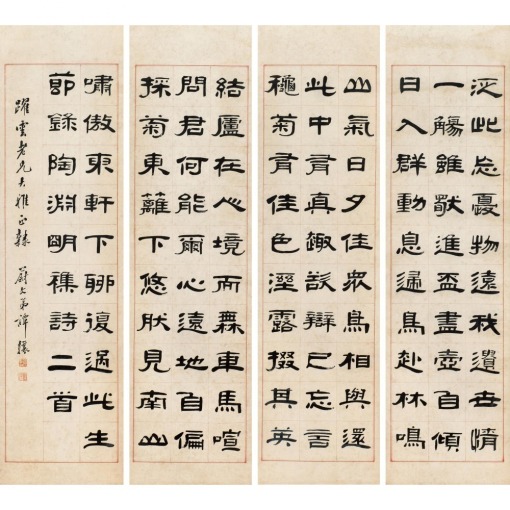 結廬在人境而無車馬喧
問君何能爾心遠地自偏
採菊東籬下悠然見南山
山氣日夕佳眾鳥相與還
此中有真趣欲辯已忘言
秋菊有佳色浥露掇其英
汎此忘憂物遠我遺世情
一觴雖獨進盃盡壺自傾
日入群動息歸鳥赴林鳴
嘯傲東軒下聊復過此生
節錄陶淵明雜詩二首
躍雲老兄大雅正隸 蔚文弟譚鑣